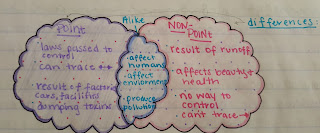 Alike
differences:
Point
laws passed to
control
can trace
result of factories,
cars, facilities
dumping toxins
affect
humans
affect
environment
produce
pollution
NON-
POINT
result of runoff
affects beauty &
health
no way to
control
can't trace